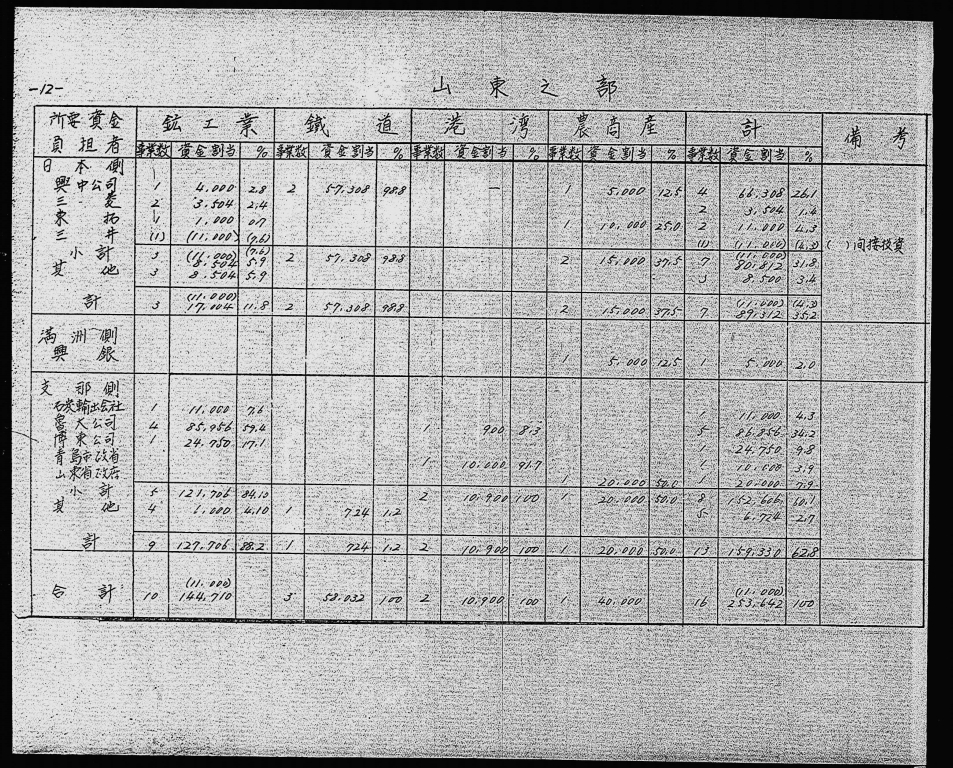 -12-
山東之部
所要資金負担者 鉱工業 鐵道 港湾 農商産 計 備考
事業数 資金割当 % 事業数 資金割当 % 事業数 資金割当 % 事業数 資金割当 % 事業数 資金割当 %
日本側
興中公司 1 4.000 2.8 2 57.308 98.8 — 1 5.000 12.5 4 66.308 26.1
三菱 2 3.504 2.4 2 3.504 1.4
東拓 1 1.000 0.7 1 10.000 25.0 2 11.000 4.3
三井 (1) (11.000) (7.6) (1) (11.000) (4.3) ( )间接投資
小計 3 (11.000) 8.504 (7.6) 5.9 2 57.308 98.8 2 15.000 37.5 7 (11.000) 80.812 31.8
其他 3 8.504 5.9 3 8.500 3.4
計 3 (11.000) 17.004 11.8 2 57.308 98.8 2 15.000 37.5 7 (11.000) 89.312 (4.3) 35.2
満洲側
興銀 1 5.000 12.5 1 5.000 2.0
支那側
石炭輸出会社 1 11.000 7.6 1 11.000 4.3
魯大公司 4 85.956 59.4 1 900 8.3 5 86.856 34.2
博東公司 1 24.750 17.1 1 24.750 9.8
青島市政省 1 10.000 91.7 1 10.000 3.9
山東省政府 1 20.000 50.0 1 20.000 7.9
小計 5 121.706 84.10 2 10.900 100 1 20.000 50.0 8 152.606 60.1
其他 4 6.000 4.10 1 724 1.2 5 6.724 2.7
計 9 127.706 88.2 1 724 1.2 2 10.900 100 1 20.000 50.0 13 159.330 62.8
合計 10 (11.000) 144.710 3 58.032 100 2 10.900 100 1 40.000 16 (11.000) 253.642 100